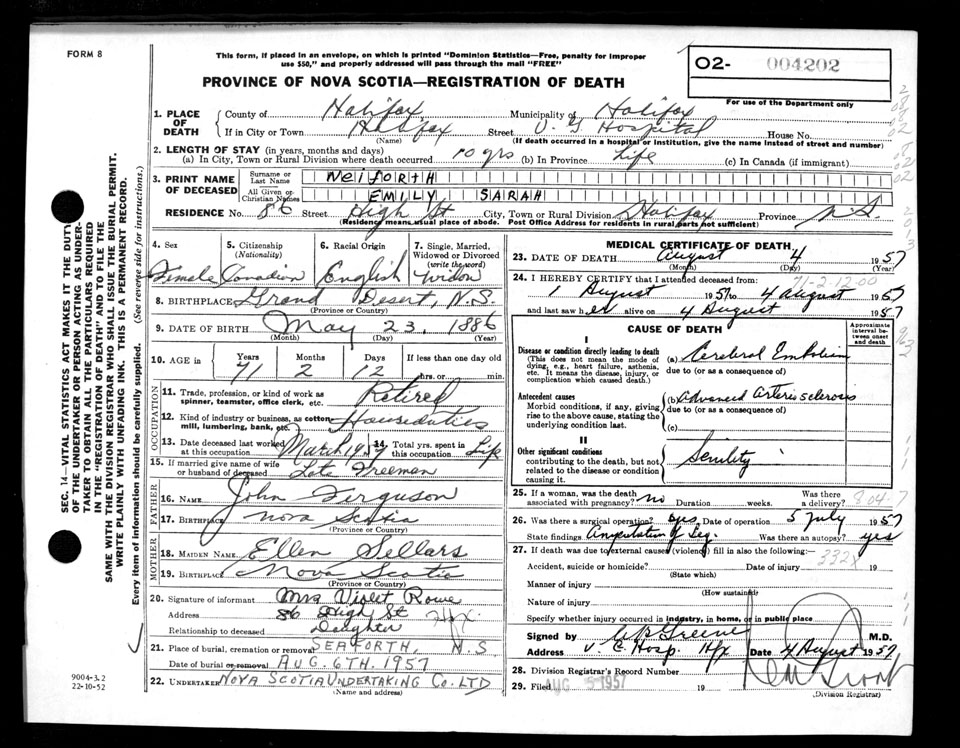 FORM 8
This form, if placed in an envelope, on which is printed "Dominion Statistics—Free, penalty for improper
use $50," and properly addressed will pass through the mail "FREE"
PROVINCE OF NOVA SCOTIA—REGISTRATION OF DEATH
O2- 004202
For use of the Department only
1. PLACE OF DEATH
County of Halifax Municipality of Halifax
If in City or Town Halifax Street V. G. Hospital House No.
(Name) (If death occurred in a hospital or institution, give the name instead of street and number)
2. LENGTH OF STAY (in years, months and days)
(a) In City, Town or Rural Division where death occurred 10 yrs (b) In Province Life (c) In Canada (if immigrant)
3. PRINT NAME OF DECEASED
Surname or Last Name NeifORTH
All Given or Christian Names EMILY SARAH
RESIDENCE No. 86 Street High St City, Town or Rural Division Halifax Province N.S.
(Residence means usual place of abode. Post Office Address for residents in rural parts not sufficient)
4. Sex Female
5. Citizenship (Nationality) Canadian
6. Racial Origin English
7. Single, Married, Widowed or Divorced (write the word) Widow
8. BIRTHPLACE Grand Desert, N.S.
(Province or Country)
9. DATE OF BIRTH May 23, 1886
(Month) (Day) (Year)
10. AGE in Years Months Days If less than one day old
71 2 12 hrs. or min.
OCCUPATION
11. Trade, profession, or kind of work as spinner, teamster, office clerk, etc. Retired
12. Kind of industry or business, as cotton-mill, lumbering, bank, etc. Housedaties
13. Date deceased last worked at this occupation March 1957 14. Total yrs. spent in this occupation Life
15. If married give name of wife or husband of deceased Late Freeman
FATHER
16. NAME John Ferguson
17. BIRTHPLACE Nova Scotia
(Province or Country)
MOTHER
18. MAIDEN NAME Ellen Sellars
19. BIRTHPLACE Nova Scotia
(Province or Country)
20. Signature of informant Mrs Violet Rowe
Address 86 High St Hfx.
Relationship to deceased Daughter
21. Place of burial, cremation or removal SEAFORTH, N.S.
Date of burial or removal AUG. 6TH. 1957
22. UNDERTAKER NOVA SCOTIA UNDERTAKING CO. LTD
(Name and address)
MEDICAL CERTIFICATE OF DEATH
23. DATE OF DEATH August 4 1957
(Month) (Day) (Year)
71-2-12-00
24. I HEREBY CERTIFY that I attended deceased from:
1 August 1957 to 4 August 1957
and last saw her alive on 4 August 1957
CAUSE OF DEATH
Approximate interval between onset and death
I
Disease or condition directly leading to death
(This does not mean the mode of dying, e.g., heart failure, asthenia, etc. It means the disease, injury, or complication which caused death.)
(a) Cerebral Embolism
due to (or as a consequence of)
Antecedent causes
Morbid conditions, if any, giving rise to the above cause, stating the underlying condition last.
(b) Advanced arteriosclerosis
due to (or as a consequence of)
(c)
II
Other significant conditions
contributing to the death, but not related to the disease or condition causing it.
Senility
25. If a woman, was the death associated with pregnancy? no Duration weeks. Was there a delivery?
26. Was there a surgical operation? yes Date of operation 5 July 1957
State findings Amputation of leg. Was there an autopsy? yes
27. If death was due to external causes (violence) fill in also the following:
332X
Accident, suicide or homicide? Date of injury 19
(State which)
Manner of injury
(How sustained)
Nature of injury
Specify whether injury occurred in industry, in home, or in public place
Signed by M.D.
Address V. G. Hosp. Hfx Date 4 August 1957
28. Division Registrar's Record Number
29. Filed AUG 5 1957 19
(Division Registrar)
SEC. 14—VITAL STATISTICS ACT MAKES IT THE DUTY
OF THE UNDERTAKER OR PERSON ACTING AS UNDER-
TAKER TO OBTAIN ALL THE PARTICULARS REQUIRED
IN THE "REGISTRATION OF DEATH" AND TO FILE THE
SAME WITH THE DIVISION REGISTRAR WHO SHALL ISSUE THE BURIAL PERMIT.
WRITE PLAINLY WITH UNFADING INK. THIS IS A PERMANENT RECORD.
Every item of information should be carefully supplied. (See reverse side for instructions.)
9004-3.2
22-10-52